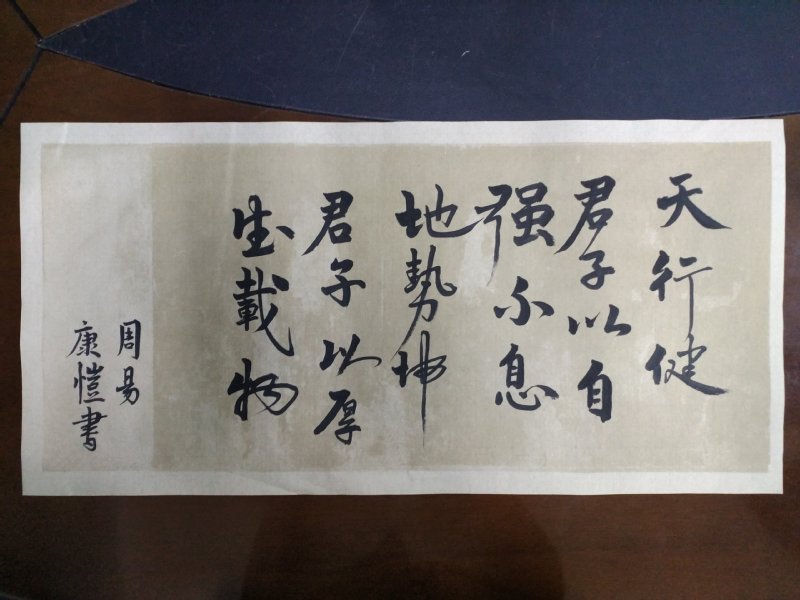 天行健
君子以自
强不息
地勢坤
君子以厚
載物
周易
康愷書